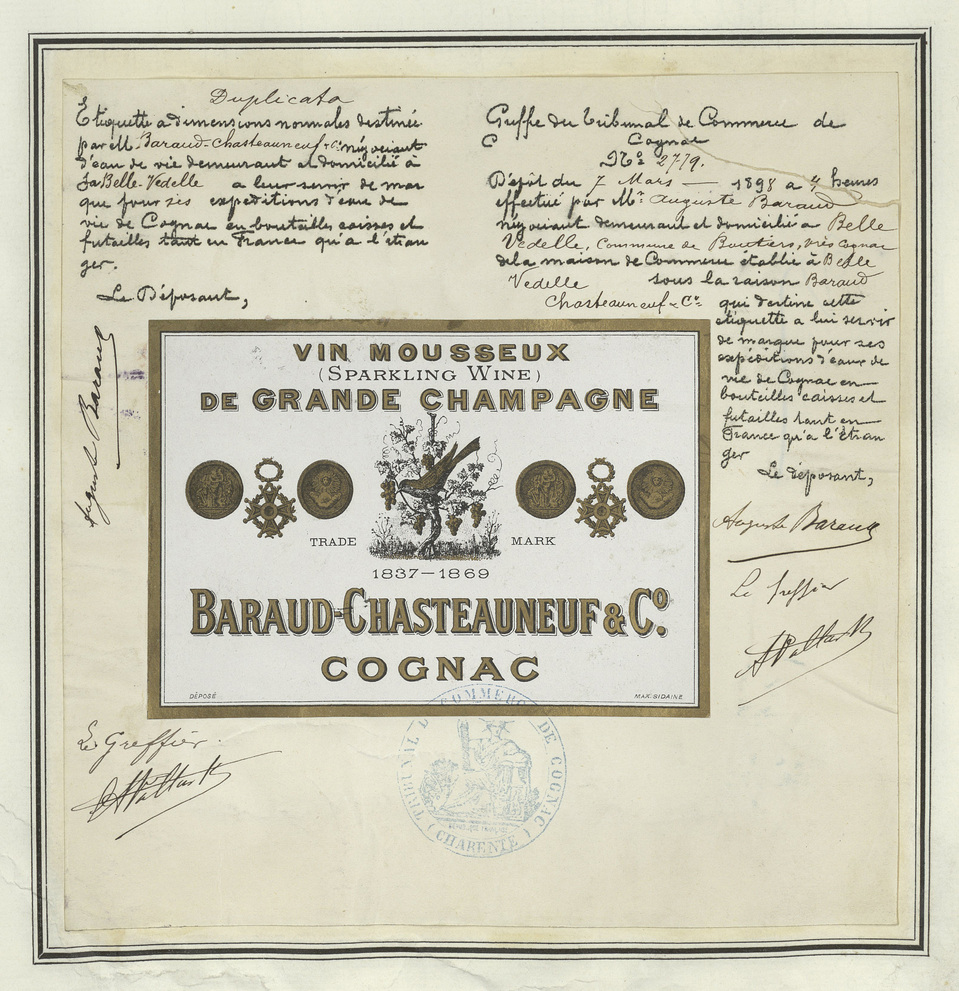 Duplicata
Etiquette a dimensions normales destinée
par M. Baraud-Chasteauneuf & Cie négociant
d'eau de vie demeurant et domicilié à
La Belle-Vedelle a leur servir de mar
que pour ses expéditions d'eau de
vie de Cognac en bouteilles caisses et
futailles tant en France qu'a l'étran
ger.
Le Déposant,
Auguste Baraud
Greffe du Tribunal de Commerce de
Cognac
No. 2779.
Dépôt du 7 Mars — 1898 a 4 heures
effectué par Mr. Auguste Baraud
négociant demeurant et domicilié a Belle
Vedelle, Commune de Boutiers, près Cognac
de la maison de Commerce établie à Belle
Vedelle sous la raison Baraud
Chasteauneuf & Co. qui destine cette
étiquette a lui servir
de marque pour ses
expéditions d'eaux de
vie de Cognac en
bouteilles caisses et
futailles tant en
France qu'a l'étran
ger
Le déposant,
Auguste Baraud
Le Greffier
VIN MOUSSEUX
(SPARKLING WINE)
DE GRANDE CHAMPAGNE
TRADE MARK
1837–1869
BARAUD-CHASTEAUNEUF & Co.
COGNAC
DÉPOSÉ
MAX. SIDAINE
Le Greffier.
TRIBUNAL DE COMMERCE DE COGNAC
(CHARENTE)